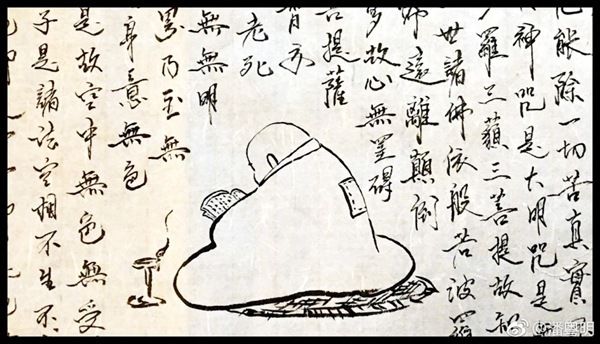 能除一切苦真實
神咒是大明咒是
羅三藐三菩提故知
世諸佛依般若波羅
怖遠離顛倒
多故心無罣礙
菩提薩
亦
老死
無無明
界乃至無
身意無色
是故空中無色無受
子是諸法空相不生不
@潘粵明